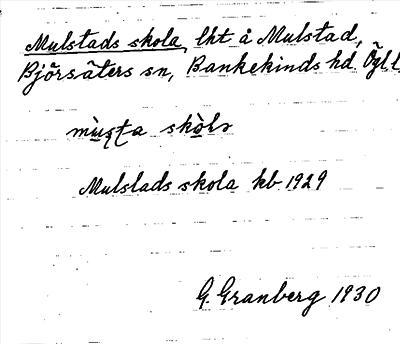 Mulstads skola, lht å Mulstad,
Björsäters sn, Bankekinds hd, Ögl
skò̱lɒ
Mulslads skola kb 1929
G. Granberg 1930